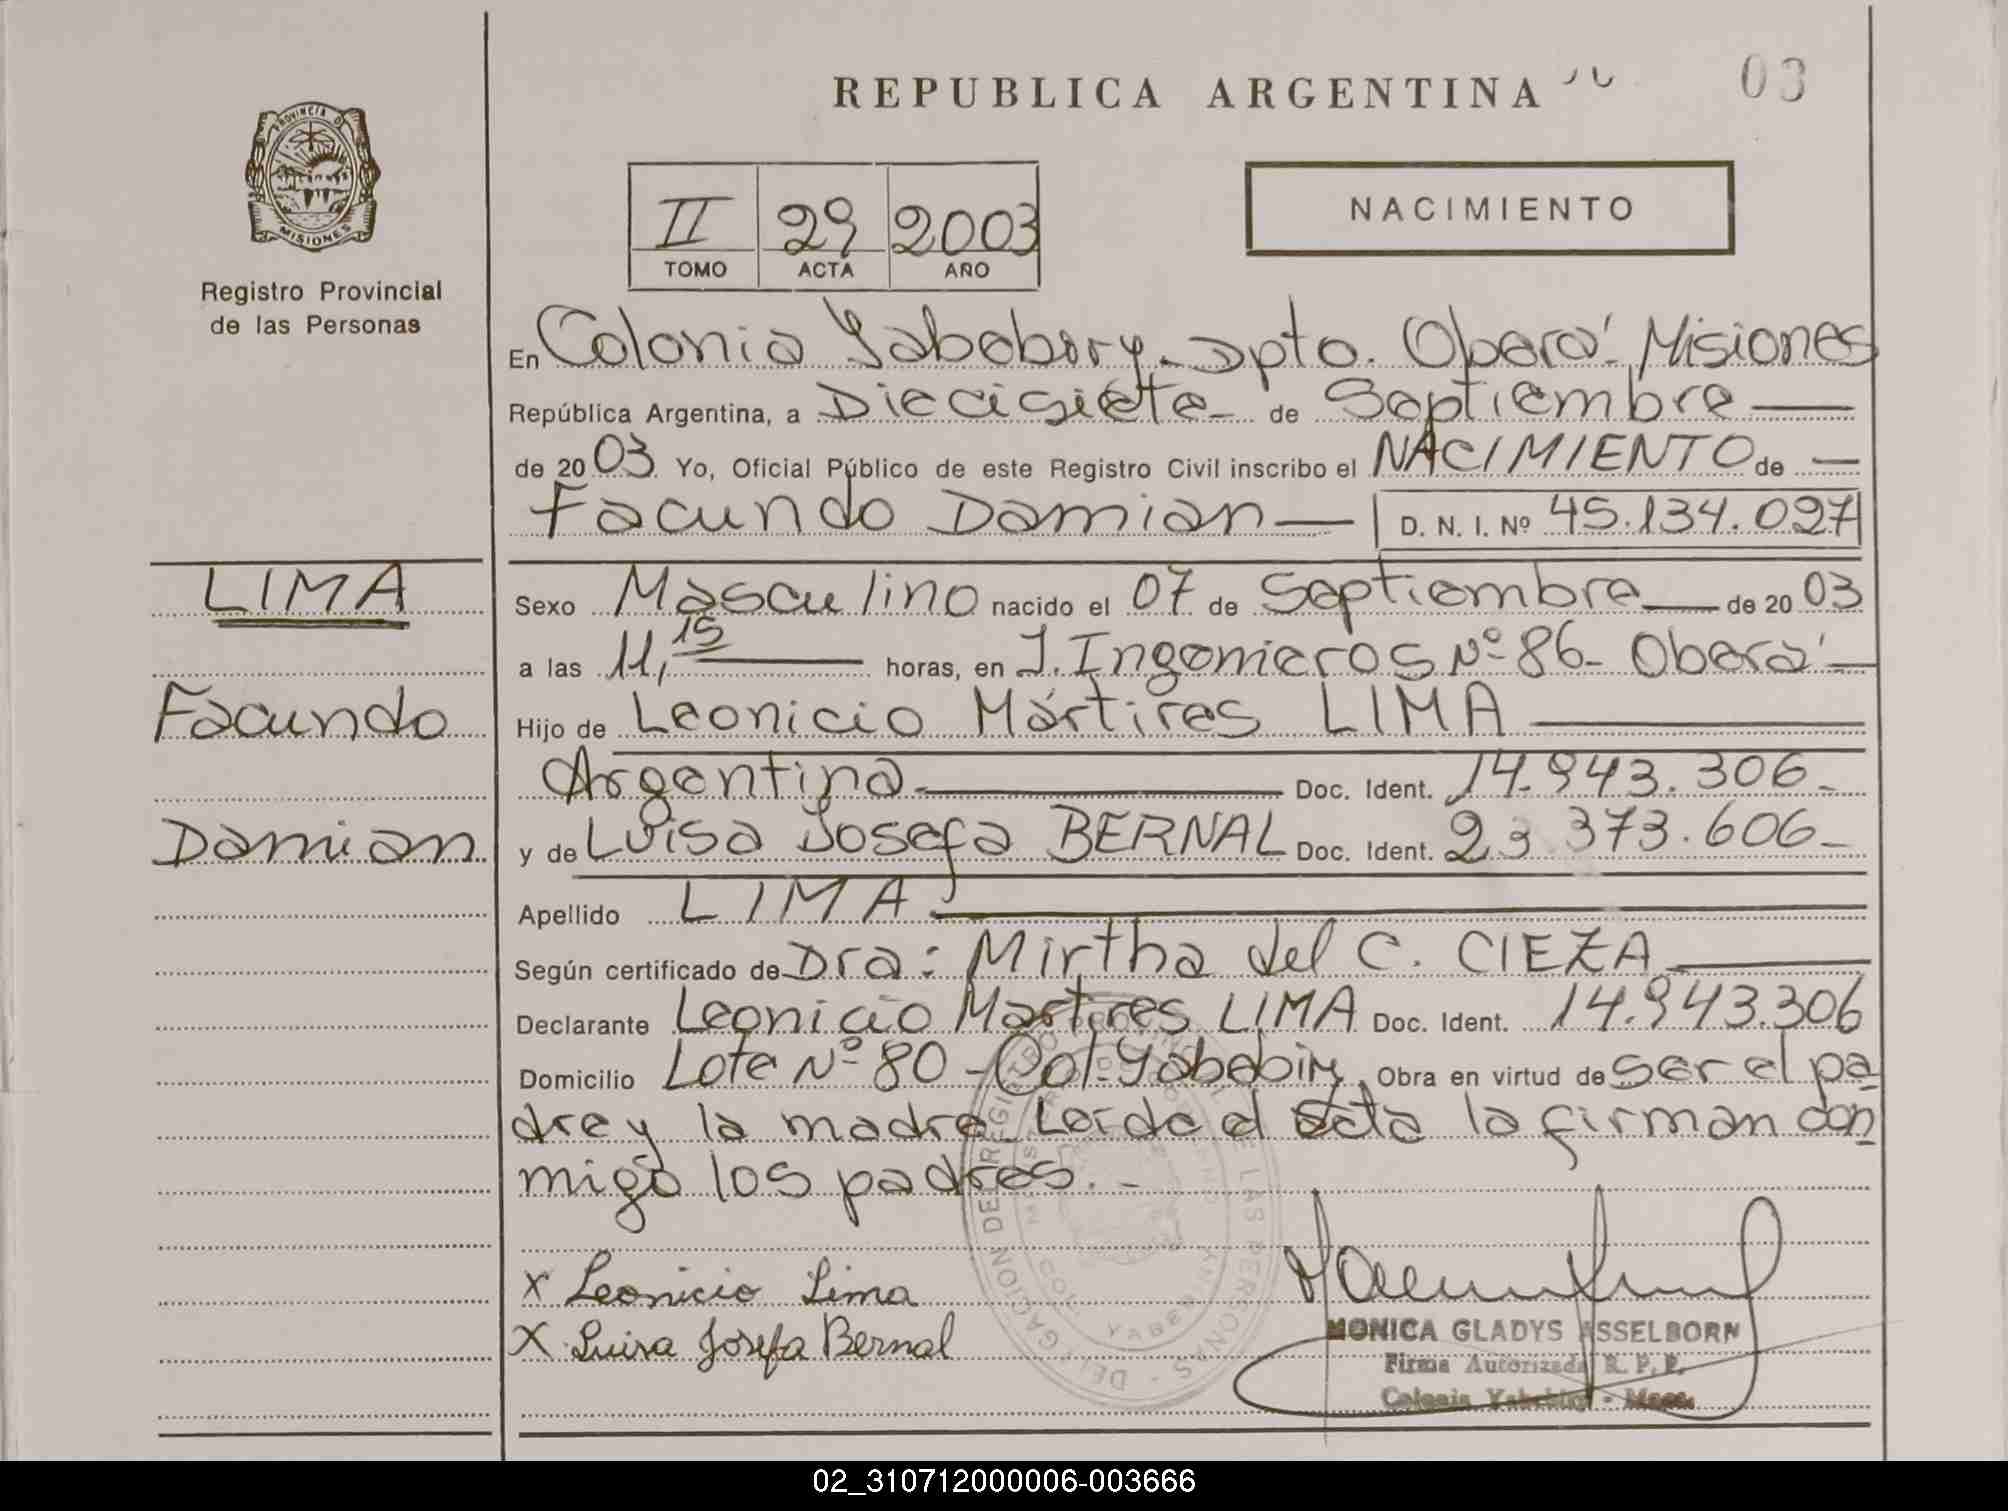 REPUBLICA ARGENTINA
03
PROVINCIA D
MISIONES
Registro Provincial
de las Personas
II 29 2003
TOMO ACTA AÑO
NACIMIENTO
En Colonia Yabebiry - Dpto. Oberá. Misiones
República Argentina, a Diecisiete de Septiembre
de 2003 Yo, Oficial Público de este Registro Civil inscribo el NACIMIENTO de
Facundo Damian D. N. I. Nº 45.134.027
LIMA
Facundo
Damian
Sexo Masculino nacido el 07 de Septiembre de 2003
a las 11,15 horas, en J. Ingenieros Nº 86- Oberá
Hijo de Leonicio Mártires LIMA
Argentina Doc. Ident. 14.943.306-
y de Luisa Josefa BERNAL Doc. Ident. 23.373.606-
Apellido LIMA
Según certificado de Dra: Mirtha del C. CIEZA
Declarante Leonicio Martires LIMA Doc. Ident. 14.943.306
Domicilio Lote Nº 80 - Col. Yabebiry Obra en virtud de ser el pa-
dre y la madre. Leída el acta la firman con
migo los padres. -
x Leonicio Lima
x Luisa Josefa Bernal
DELEGACION DEL REGISTRO PROVINCIAL DE LAS PERSONAS
COL. YABEBIRY
MONICA GLADYS ASSELBORN
Firma Autorizada R. P. P.
Colonia Yabebiry - Mnes.
02_310712000006-003666